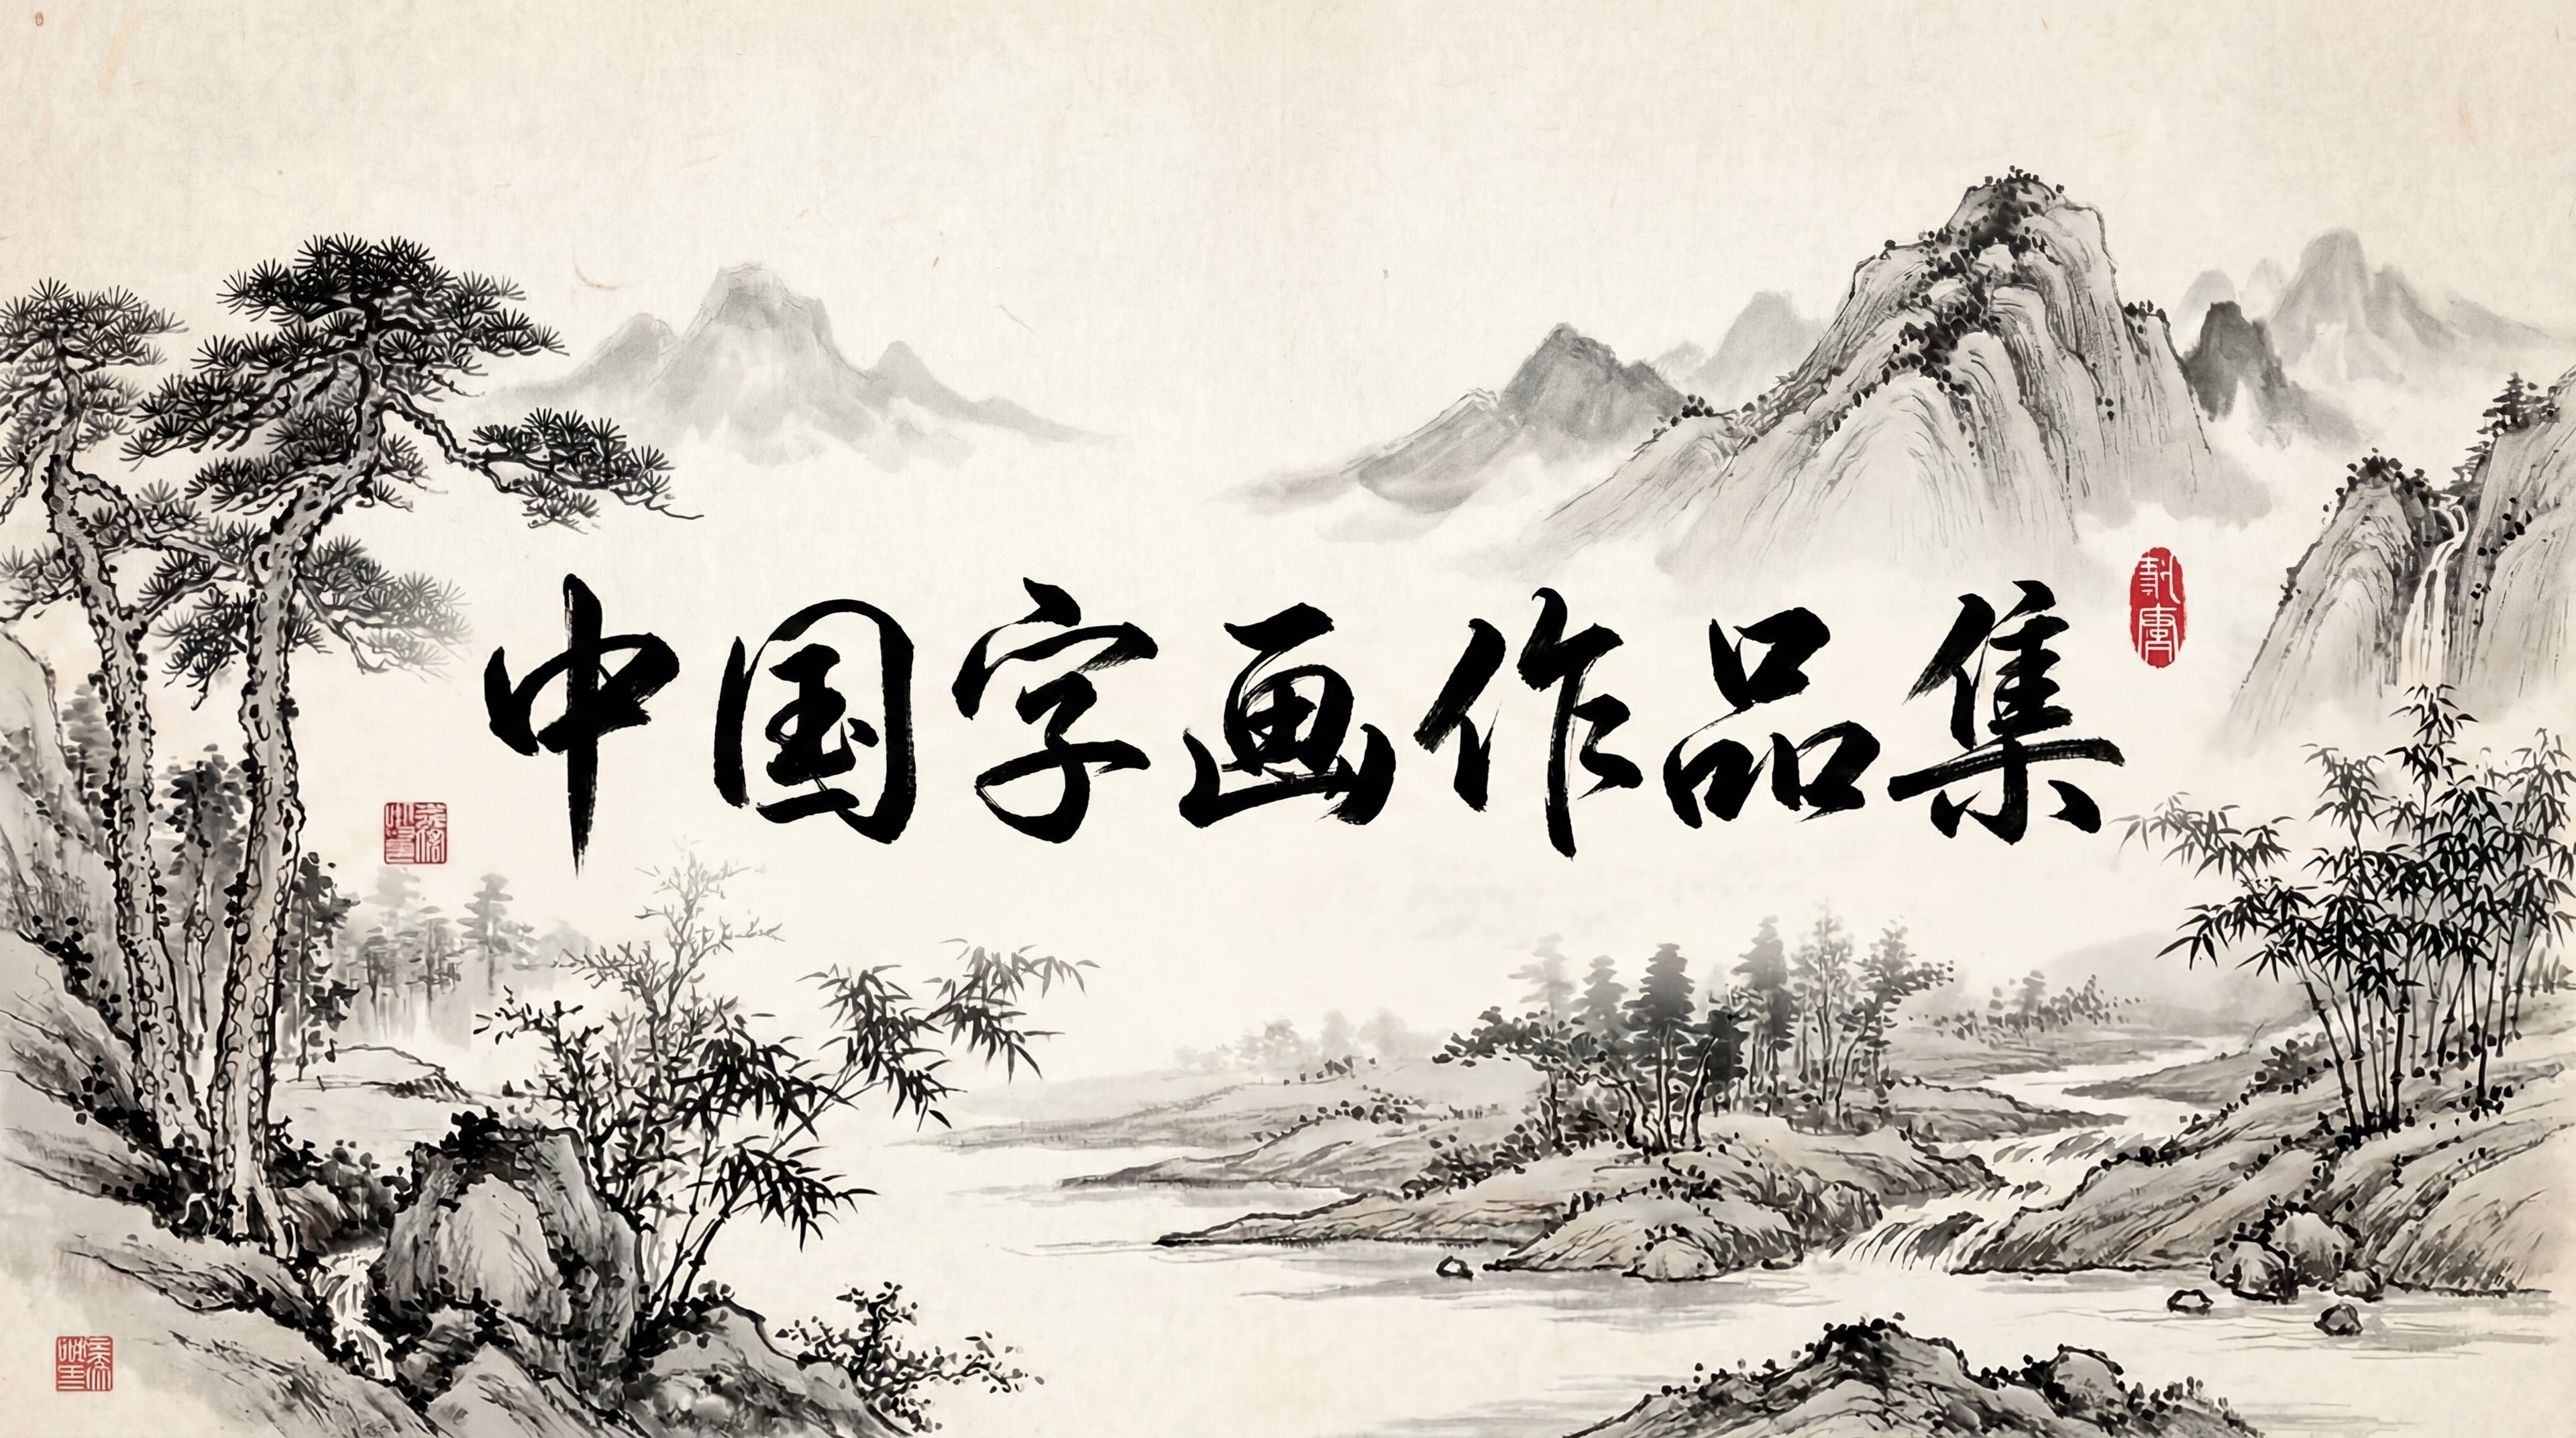 中国字画作品集